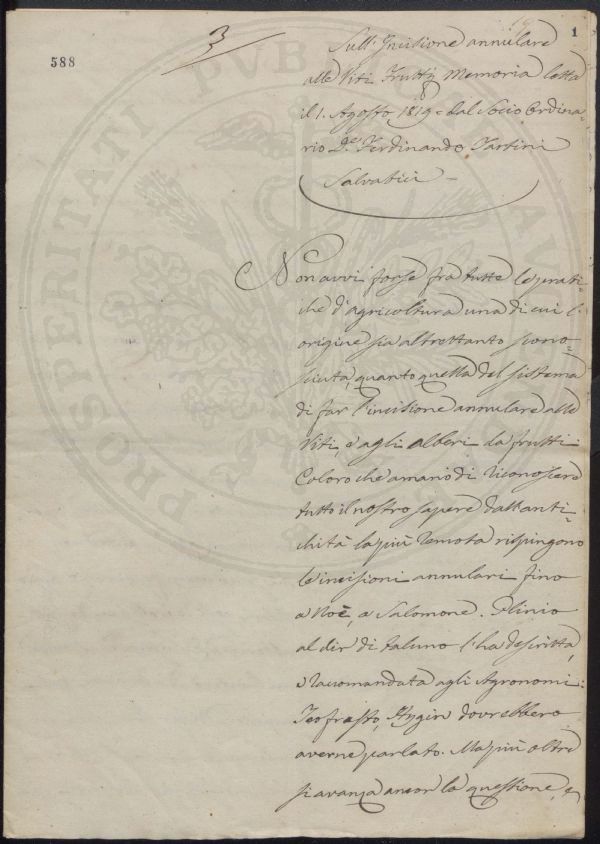 588
3
1
Sull' Incisione annulare
alle Viti Frutti Memoria letta
il 1. Agosto 1819. dal Socio Ordina=
rio D.e Ferdinando Tartini
Salvatici
Non avvi forse fra tutte le prati=
che d'agricoltura una di cui l'
origine sia altrettanto scono=
sciuta, quanto quella del sistema
di far l'incisione annulare alle
Viti, e agli alberi da frutti
Coloro che amano di riconoscere
tutto il nostro sapere dall'anti=
chità la più remota rispingono
le incisioni annulari fino
a Noè, a Salomone. Plinio
al dir di taluno l'ha descritta,
e racomandata agli Agronomi:
Teofrasto, Hygin dovrebbero
averne parlato. Ma più oltre
si avanza ancor la questione, e
PROSPERITATI PVBLICAE AVGENDAE